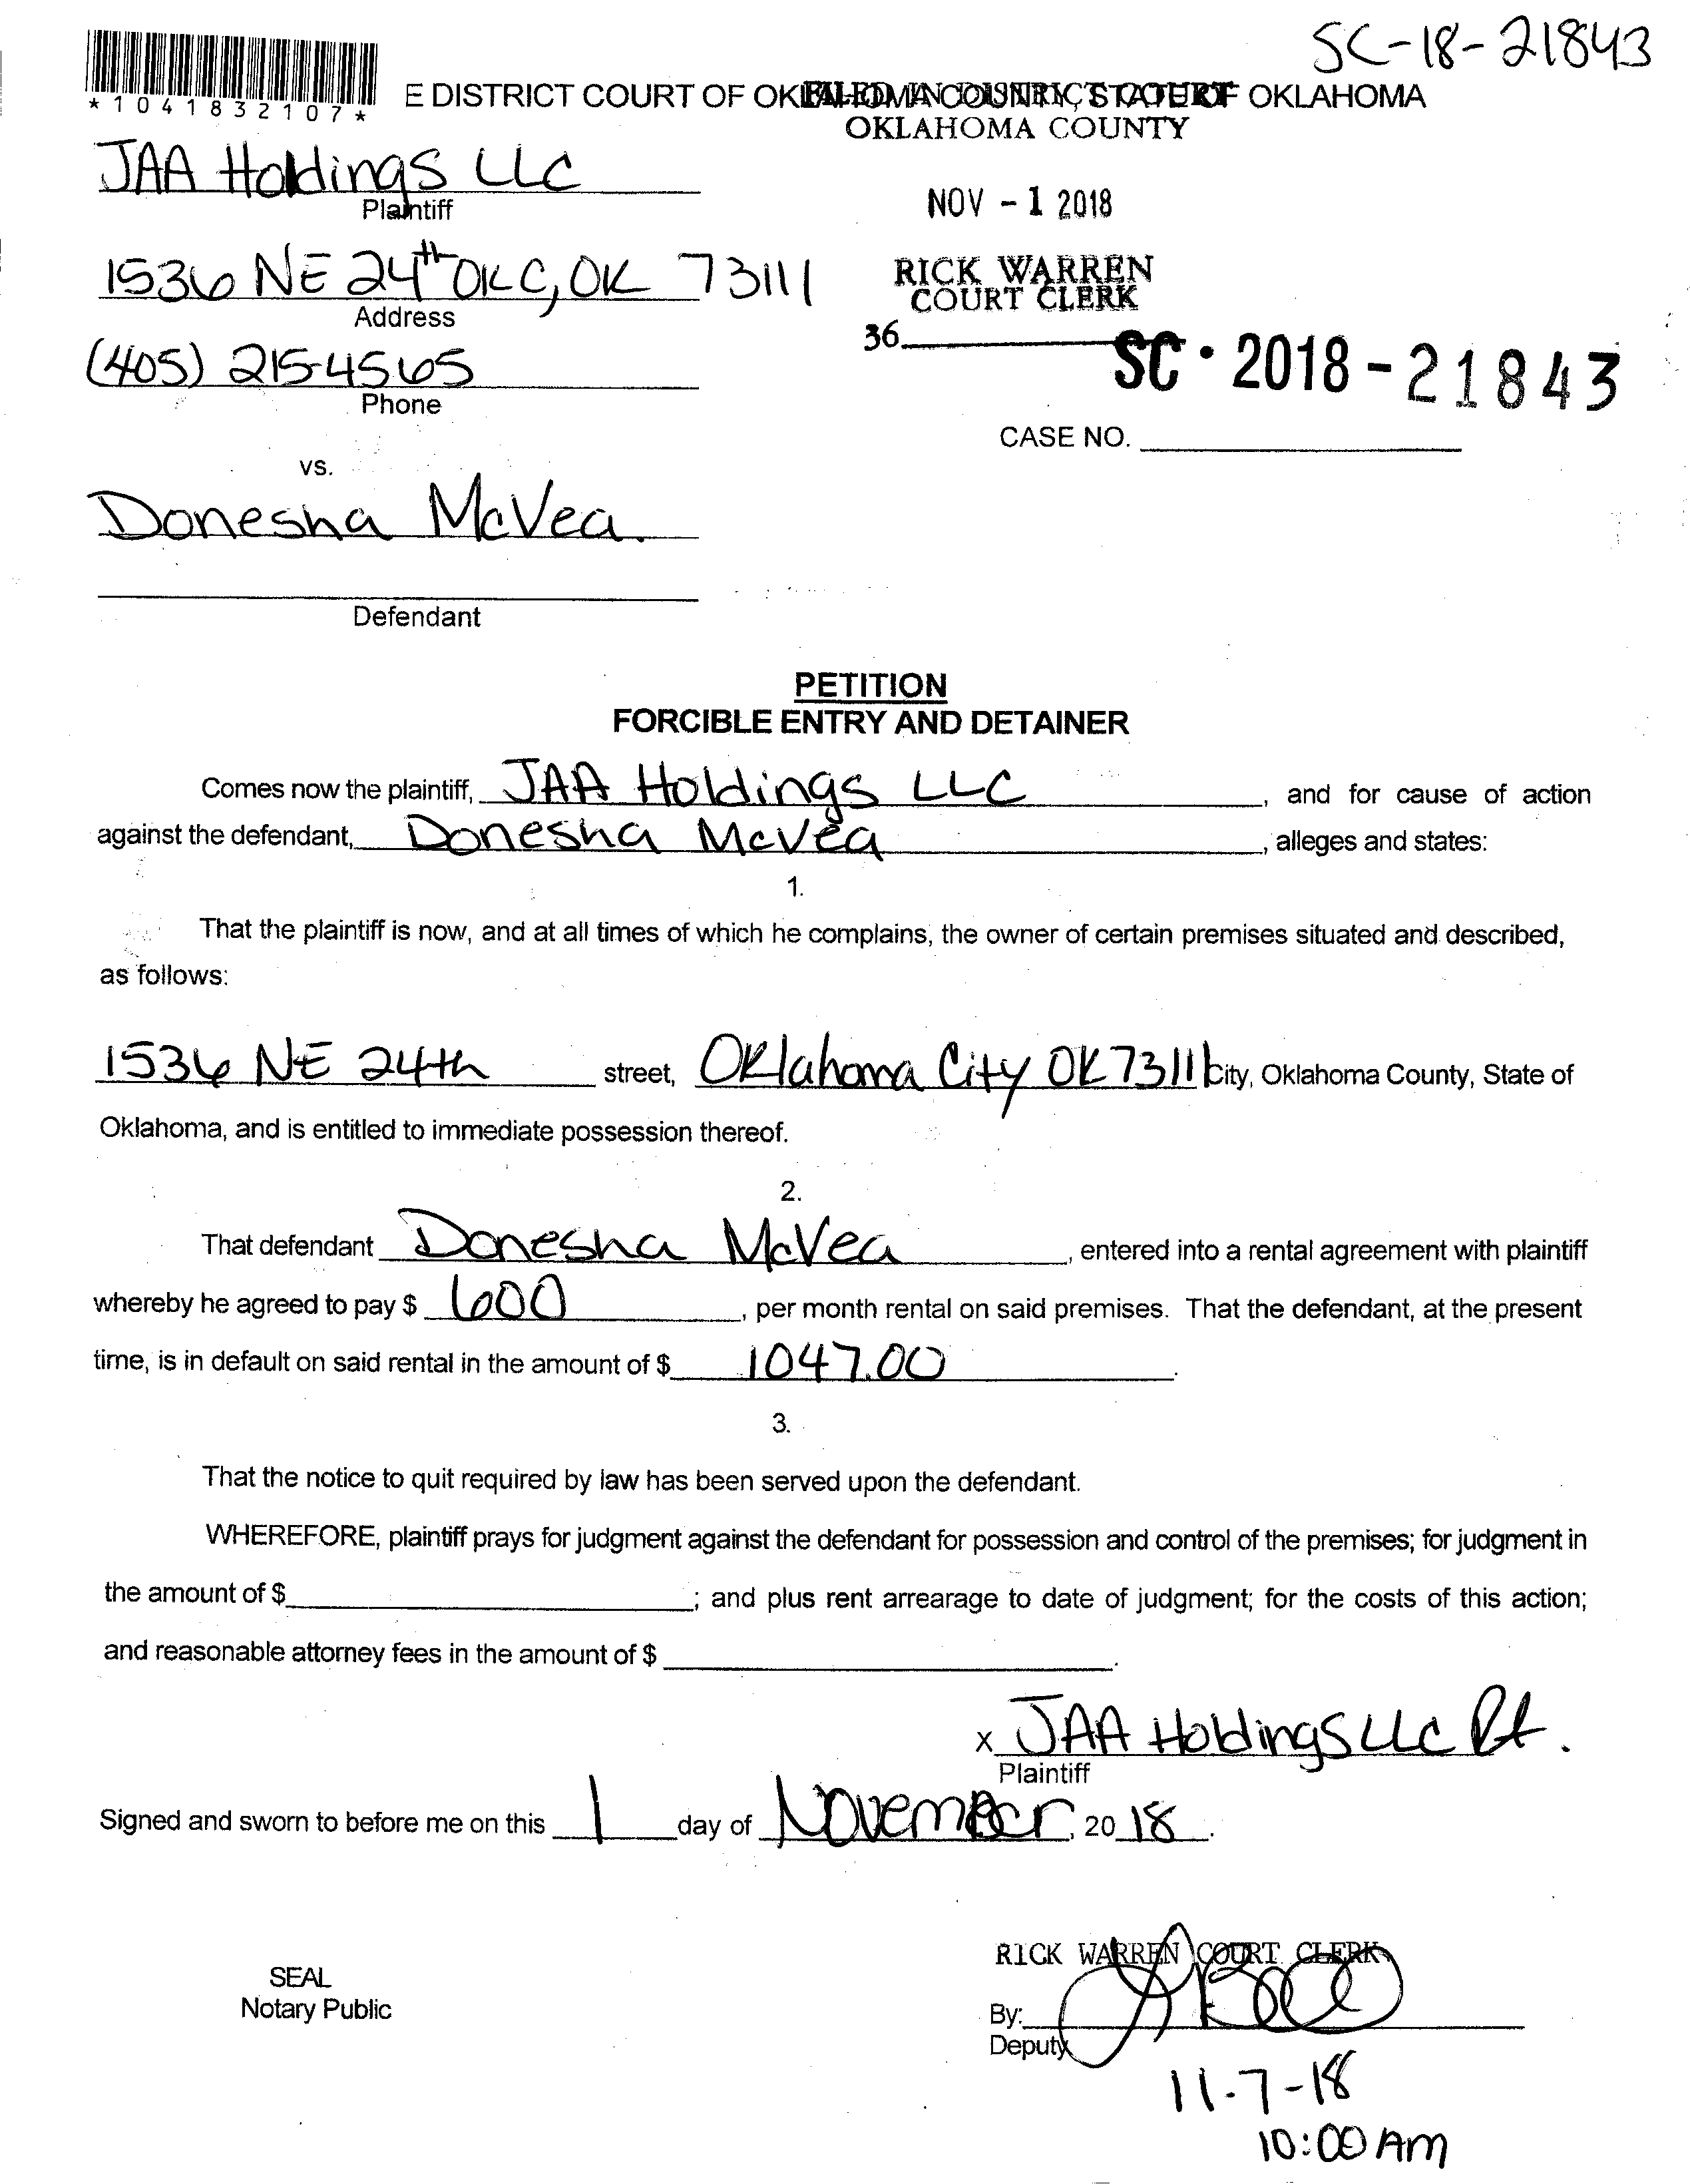 SC-18-21843
*1041832107*
E DISTRICT COURT OF OKLAHOMA COUNTY, STATE OF OKLAHOMA
FILED IN DISTRICT COURT
OKLAHOMA COUNTY
JAA Holdings LLC
Plaintiff
NOV - 1 2018
1536 NE 24th OKC, OK 73111
Address
RICK WARREN
COURT CLERK
36
(405) 215-4565
Phone
SC • 2018 - 21843
CASE NO.
vs.
Donesha McVea
Defendant
PETITION
FORCIBLE ENTRY AND DETAINER
Comes now the plaintiff, JAA Holdings LLC, and for cause of action
against the defendant, Donesha McVea, alleges and states:
1.
That the plaintiff is now, and at all times of which he complains, the owner of certain premises situated and described,
as follows:
1536 NE 24th street, Oklahoma City OK 73111 City, Oklahoma County, State of
Oklahoma, and is entitled to immediate possession thereof.
2.
That defendant Donesha McVea, entered into a rental agreement with plaintiff
whereby he agreed to pay $ 600, per month rental on said premises. That the defendant, at the present
time, is in default on said rental in the amount of $ 1047.00.
3.
That the notice to quit required by law has been served upon the defendant.
WHEREFORE, plaintiff prays for judgment against the defendant for possession and control of the premises; for judgment in
the amount of $ ; and plus rent arrearage to date of judgment; for the costs of this action;
and reasonable attorney fees in the amount of $ .
x JAA Holdings LLC
Plaintiff
Signed and sworn to before me on this 1 day of November, 20 18.
RICK WARREN COURT CLERK
SEAL
Notary Public
By:
Deputy
11-7-18
10:00 AM